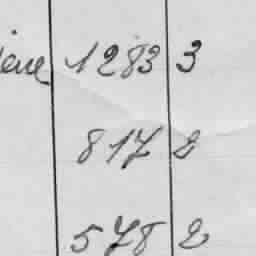 1283 3
817 2
578 2